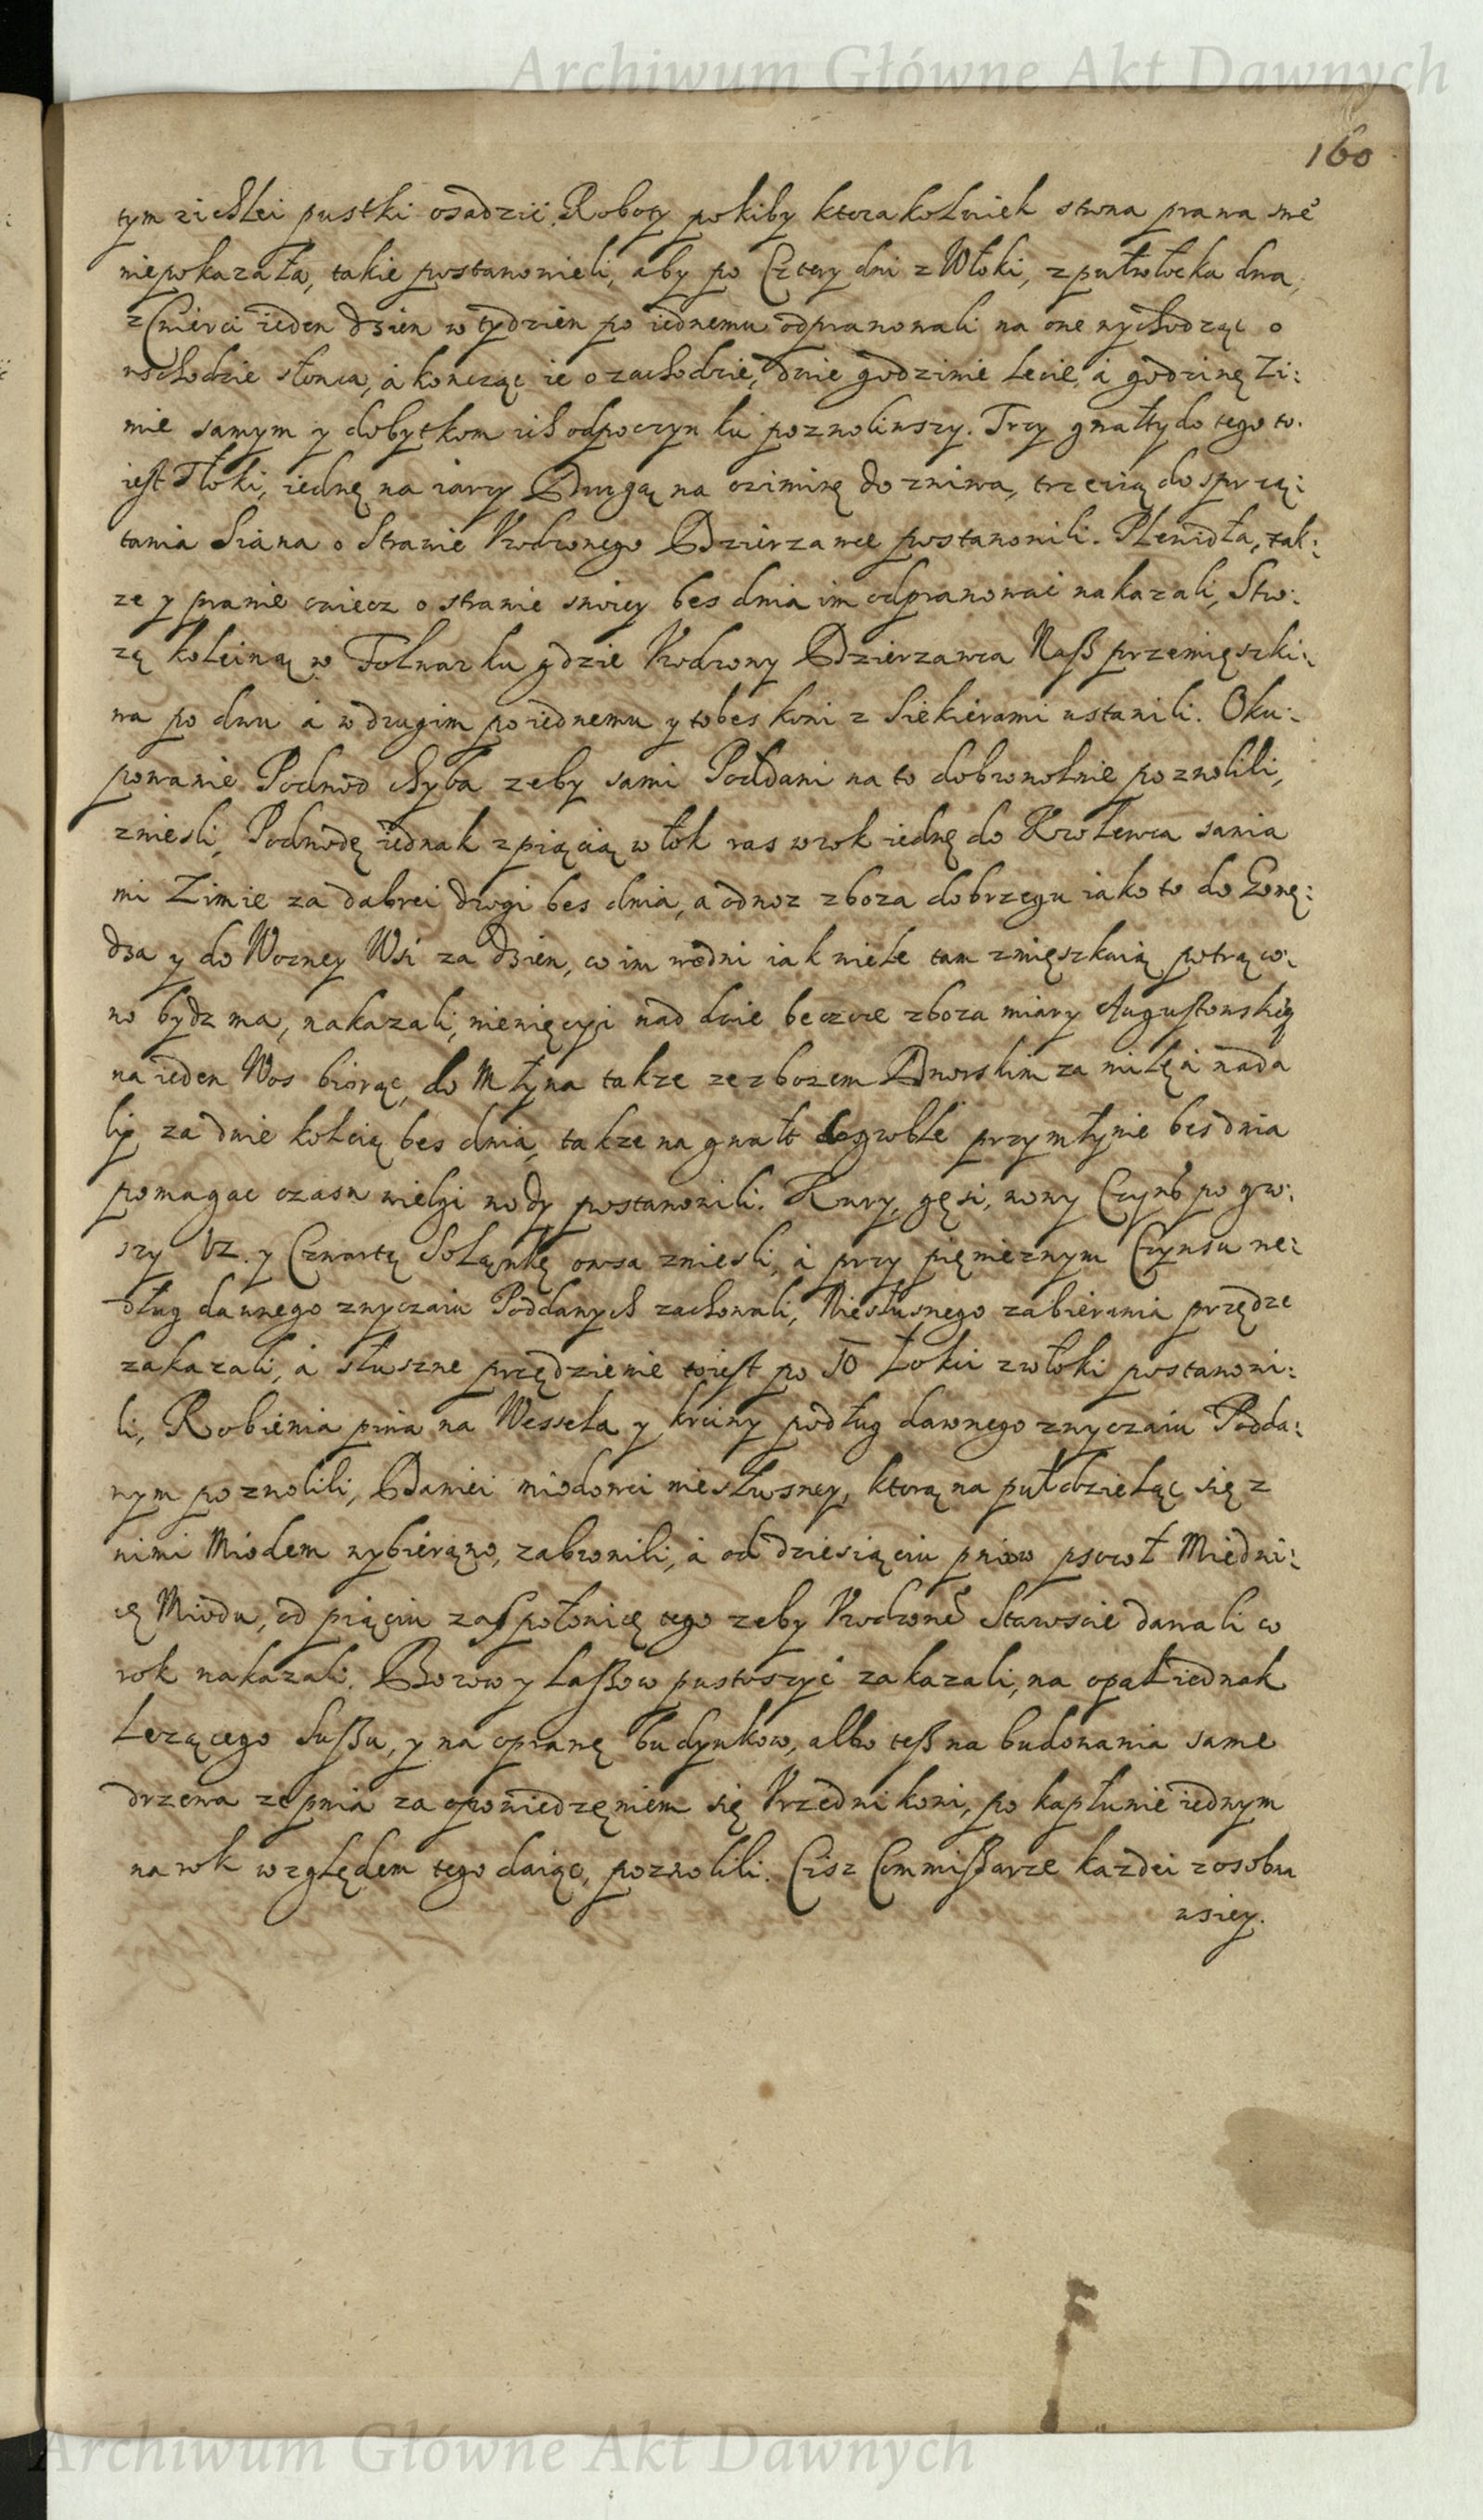 Archiwum Główne Akt Dawnych
160
tym ziechei pustki osadzić. Roboty pokiby ktorakolwiek strona prawa swe͞
niepokazała, takie postanowieli, aby po Cztery dni z Włoki, z pułwłocka dwa,
z Cwierci ieden dzien w tydzien po iednemu odprawowali na one wychodząc o
wschodzie słonca, á koncząc ie o zachodzie, dwie godzinie lecie, á godzinę Zi:
mie samym y dobytkom ich odpoczynku pozwoliwszy. Trzy gwałty do tego to.
iest Tłoki, iednę na iarzy Drugą na oziminę do zniwa, trzecią do sprzą:
tania Siana o Strawie Vrodzonego Dzierzawce postanowili. Plewidła, tak:
ze y pranie owiecz o strawie swoiey bes dnia im odprawować nakazali, Stro:
zą koleiną w Folwarku gdzie Vrodzony Dzierzawca Nasz przemięszki:
wa po dwu á w drugim po iednemu y to bes koni z Siekierami ustawili. Oku:
powanie Podwod chyba zeby sami Poddani na to dobrowolnie pozwolili,
zniesli, Podwodę iednak z piącią włok ras w rok iednę do Krolewca sania
mi Zimie za dobrei drogi bes dnia, a odwoz zboza dobrzegu iako to do Gonę:
dza y do Wozney Wsi za dzien, co im wedni iak wiele tam zmięszkaią potrąco:
no bydz ma, nakazali, niewięcyi nad dwie beczce zboza miary Augustowskiey
na ieden Wos biorąc, do Młyna takze ze zbozem Dworskim za milę á nada
lij za dwie kolcią bes dnia, takze na gwałt do groble przy młynie bes dnia
pomagac czasu wielgi wody postanowili. Kury, gęsi, nowy Czynsz po gro:
szy 12. y Czwartą Solankę owsa zniesli, á przy pięnieznym Czynsu we:
dług dawnego zwyczaiu Poddanych zachowali, Niesłusnego zabierania przędze
zakazali, á słuszne przędzienie toiest po 10 Łokci z włoki postanowi:
li, Robienia piwa na Wessela y krciny podług dawnego zwyczaiu Podda:
nym pozwolili, Daniei miodowei niesłusney, ktorą na puł dzieląc się z
nimi Miodem wybierano, zabronili, á od dziesiąciu pniow pszczoł Miedni:
cę Miodu, od piąciu zas połowicę tego zeby Vrodzone͞ Staroscie dawali co
rok nakazali. Borow y lassow pustoszyć zakazali, na opał iednak
Lezącego Suszu, y na oprawę budynkow, albo tesz na budowania same
drzewa ze pnia za opowiedzęniem się Vrzednikowi, po kapłunie iednym
na rok względem tego daiąc, pozwolili. Cisz Commissarze kazdei z osobna
wsiey.
Archiwum Główne Akt Dawnych